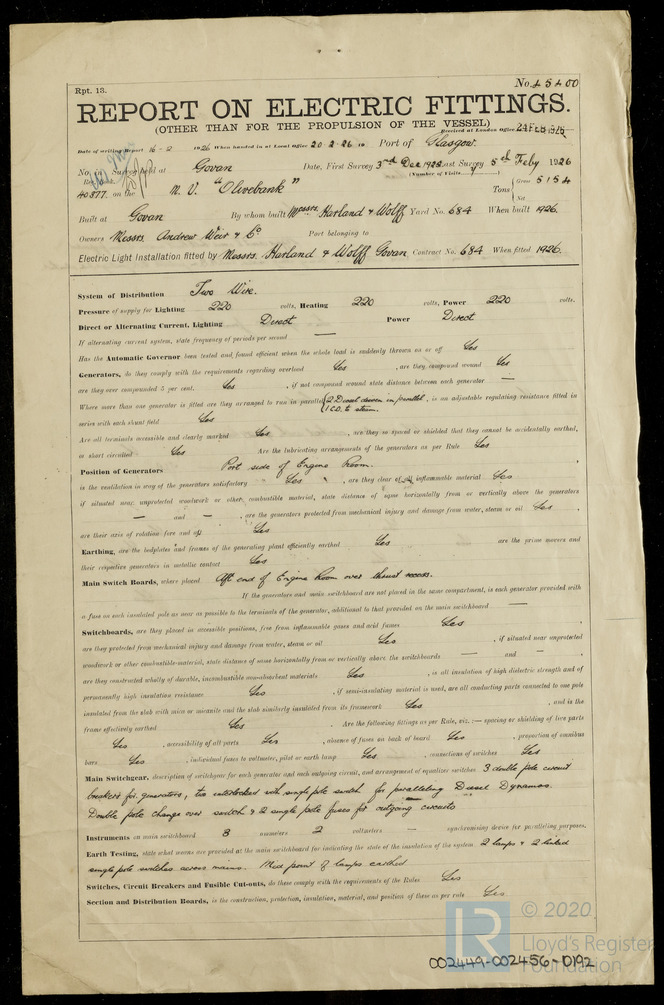 Rpt. 13.
No. 45400
REPORT ON ELECTRIC FITTINGS.
(OTHER THAN FOR THE PROPULSION OF THE VESSEL)
Received at London Office 24 FEB 1926
Date of writing Report 16-2 1926 When handed in at Local Office 20.2.26 19 Port of Glasgow.
No. in Survey held at Govan Date, First Survey 3rd Dec 1925 Last Survey 5th Feby 1926
Reg. Book. (Number of Visits
40877. on the M.V. "Olivebank" Tons { Gross 5154
Net
Built at Govan By whom built Messrs. Harland & Wolff Yard No. 684 When built 1926.
Owners Messrs. Andrew Weir & Co Port belonging to
Electric Light Installation fitted by Messrs. Harland & Wolff Govan, Contract No. 684 When fitted 1926.
System of Distribution Two Wire.
Pressure of supply for Lighting 220 volts, Heating 220 volts, Power 220 volts.
Direct or Alternating Current, Lighting Direct Power Direct
If alternating current system, state frequency of periods per second —
Has the Automatic Governor been tested and found efficient when the whole load is suddenly thrown on or off Yes
Generators, do they comply with the requirements regarding overload Yes , are they compound wound Yes
are they over compounded 5 per cent. Yes , if not compound wound state distance between each generator —
Where more than one generator is fitted are they arranged to run in parallel { 2 Diesel driven in parallel , is an adjustable regulating resistance fitted in
1 C.O. to steam.
series with each shunt field Yes
Are all terminals accessible and clearly marked Yes , are they so spaced or shielded that they cannot be accidentally earthed,
or short circuited Yes Are the lubricating arrangements of the generators as per Rule Yes
Position of Generators Port side of Engine Room.
is the ventilation in way of the generators satisfactory Yes , are they clear of all inflammable material Yes
if situated near unprotected woodwork or other combustible material, state distance of same horizontally from or vertically above the generators
— and — , are the generators protected from mechanical injury and damage from water, steam or oil Yes
are their axis of rotation fore and aft Yes
Earthing, are the bedplates and frames of the generating plant efficiently earthed Yes are the prime movers and
their respective generators in metallic contact Yes
Main Switch Boards, where placed Aft end of Engine Room over thrust recess.
If the generators and main switchboard are not placed in the same compartment, is each generator provided with
a fuse on each insulated pole as near as possible to the terminals of the generator, additional to that provided on the main switchboard —
Switchboards, are they placed in accessible positions, free from inflammable gases and acid fumes Yes
are they protected from mechanical injury and damage from water, steam or oil Yes , if situated near unprotected
woodwork or other combustible-material, state distance of same horizontally from or vertically above the switchboards — and —
are they constructed wholly of durable, incombustible non-absorbent materials Yes , is all insulation of high dielectric strength and of
permanently high insulation resistance Yes , if semi-insulating material is used, are all conducting parts connected to one pole
insulated from the slab with mica or micanite and the slab similarly insulated from its framework Yes , and is the
frame effectively earthed Yes . Are the following fittings as per Rule, viz.:— spacing or shielding of live parts
Yes , accessibility of all parts Yes , absence of fuses on back of board Yes , proportion of omnibus
bars Yes , individual fuses to voltmeter, pilot or earth lamp Yes , connections of switches Yes
Main Switchgear, description of switchgear for each generator and each outgoing circuit, and arrangement of equalizer switches 3 double pole circuit
breakers for generators, two interlocked with single pole switch for paralleling Diesel Dynamos.
Double pole change over switch & 2 single pole fuses for outgoing circuits
Instruments on main switchboard 8 ammeters 2 voltmeters — synchronising device for paralleling purposes.
Earth Testing, state what means are provided at the main switchboard for indicating the state of the insulation of the system 2 lamps & 2 linked
single pole switches across mains. Mid point of lamps earthed
Switches, Circuit Breakers and Fusible Cut-outs, do these comply with the requirements of the Rules Yes
Section and Distribution Boards, is the construction, protection, insulation, material, and position of these as per rule Yes
© 2020
LR
Lloyd's Register
Foundation
002449-002456-0192